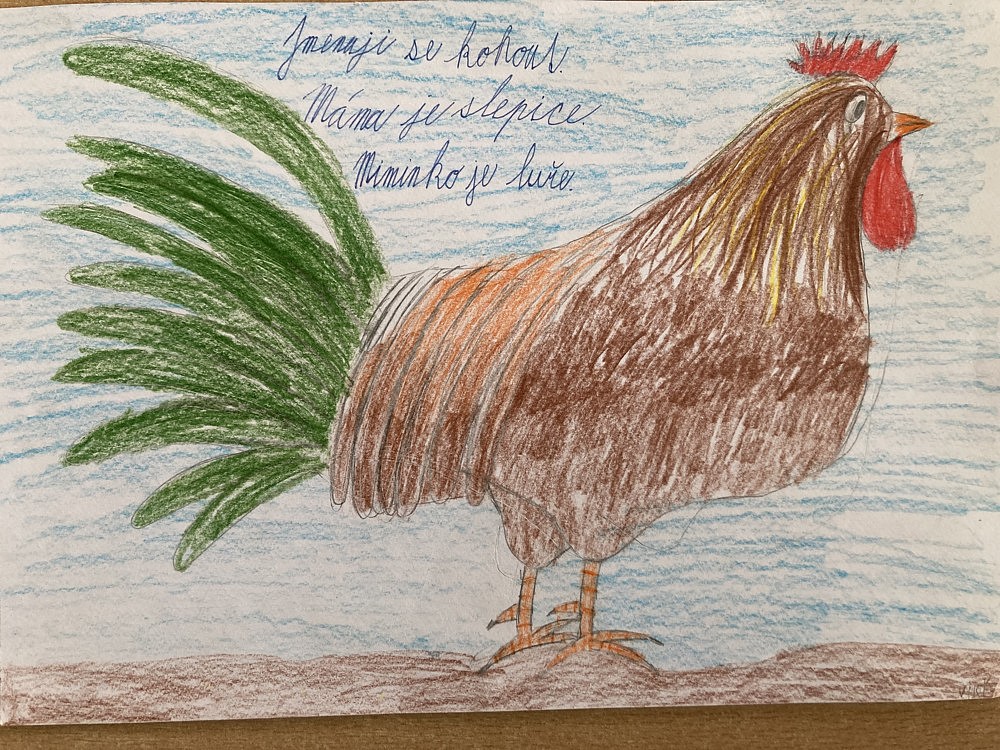 Jmenuji se kohout.
Máma je slepice.
Miminko je kuře.